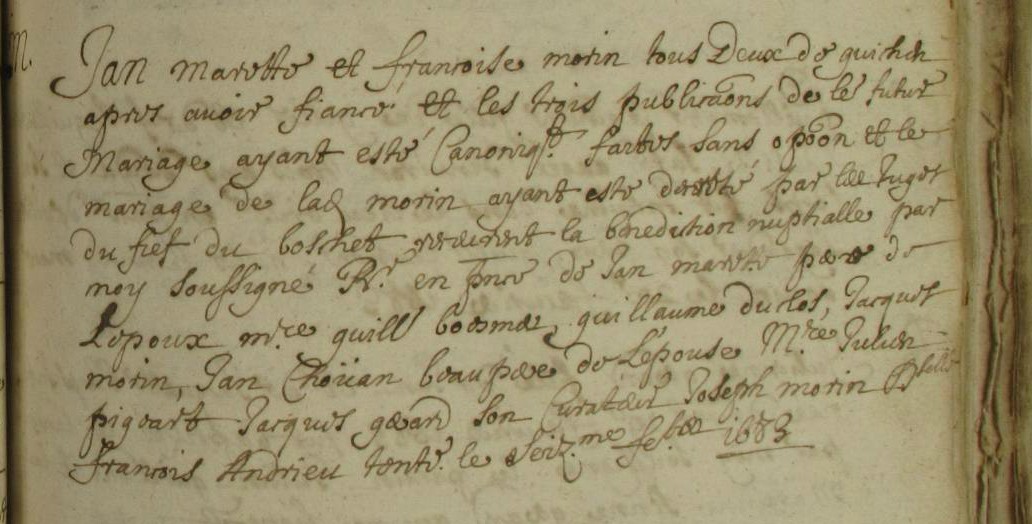 M.
Jan marette et francoise morin tous Deux de guichen
apres avoir fiancé et les trois publicaons de le futur
Mariage ayant esté Canoniqt. faittes sans opoon et le
mariage de lad morin ayant este decreté par les Juges
du fief du boschet receurent la benedition nuptialle par
moy soussigné Rr. en pnce de Jan marette pere de
Lepoux m.re guill boesme, guillaume duclos, Jacques
morin, Jan Choüan beaupere de Lepouse M.re Julien
pigeart Jacques geard son Curateur Joseph morin
francois Andrieu le seiz.me feb.er 1683